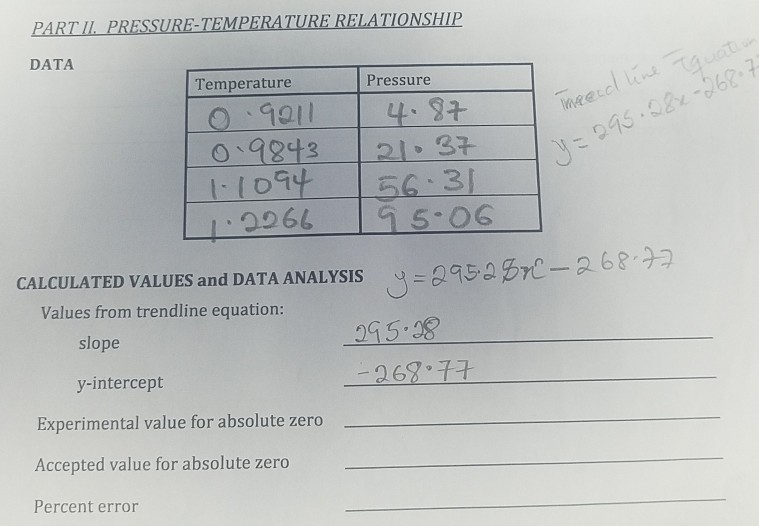 PART II. PRESSURE-TEMPERATURE RELATIONSHIP
DATA
Temperature Pressure
0.9211 4.87
0.9843 21.37
1.1094 56.31
1.2266 95.06
line Equation
y = 295.28x - 268.77
CALCULATED VALUES and DATA ANALYSIS y = 295.28x - 268.77
Values from trendline equation:
slope 295.28
y-intercept -268.77
Experimental value for absolute zero
Accepted value for absolute zero
Percent error